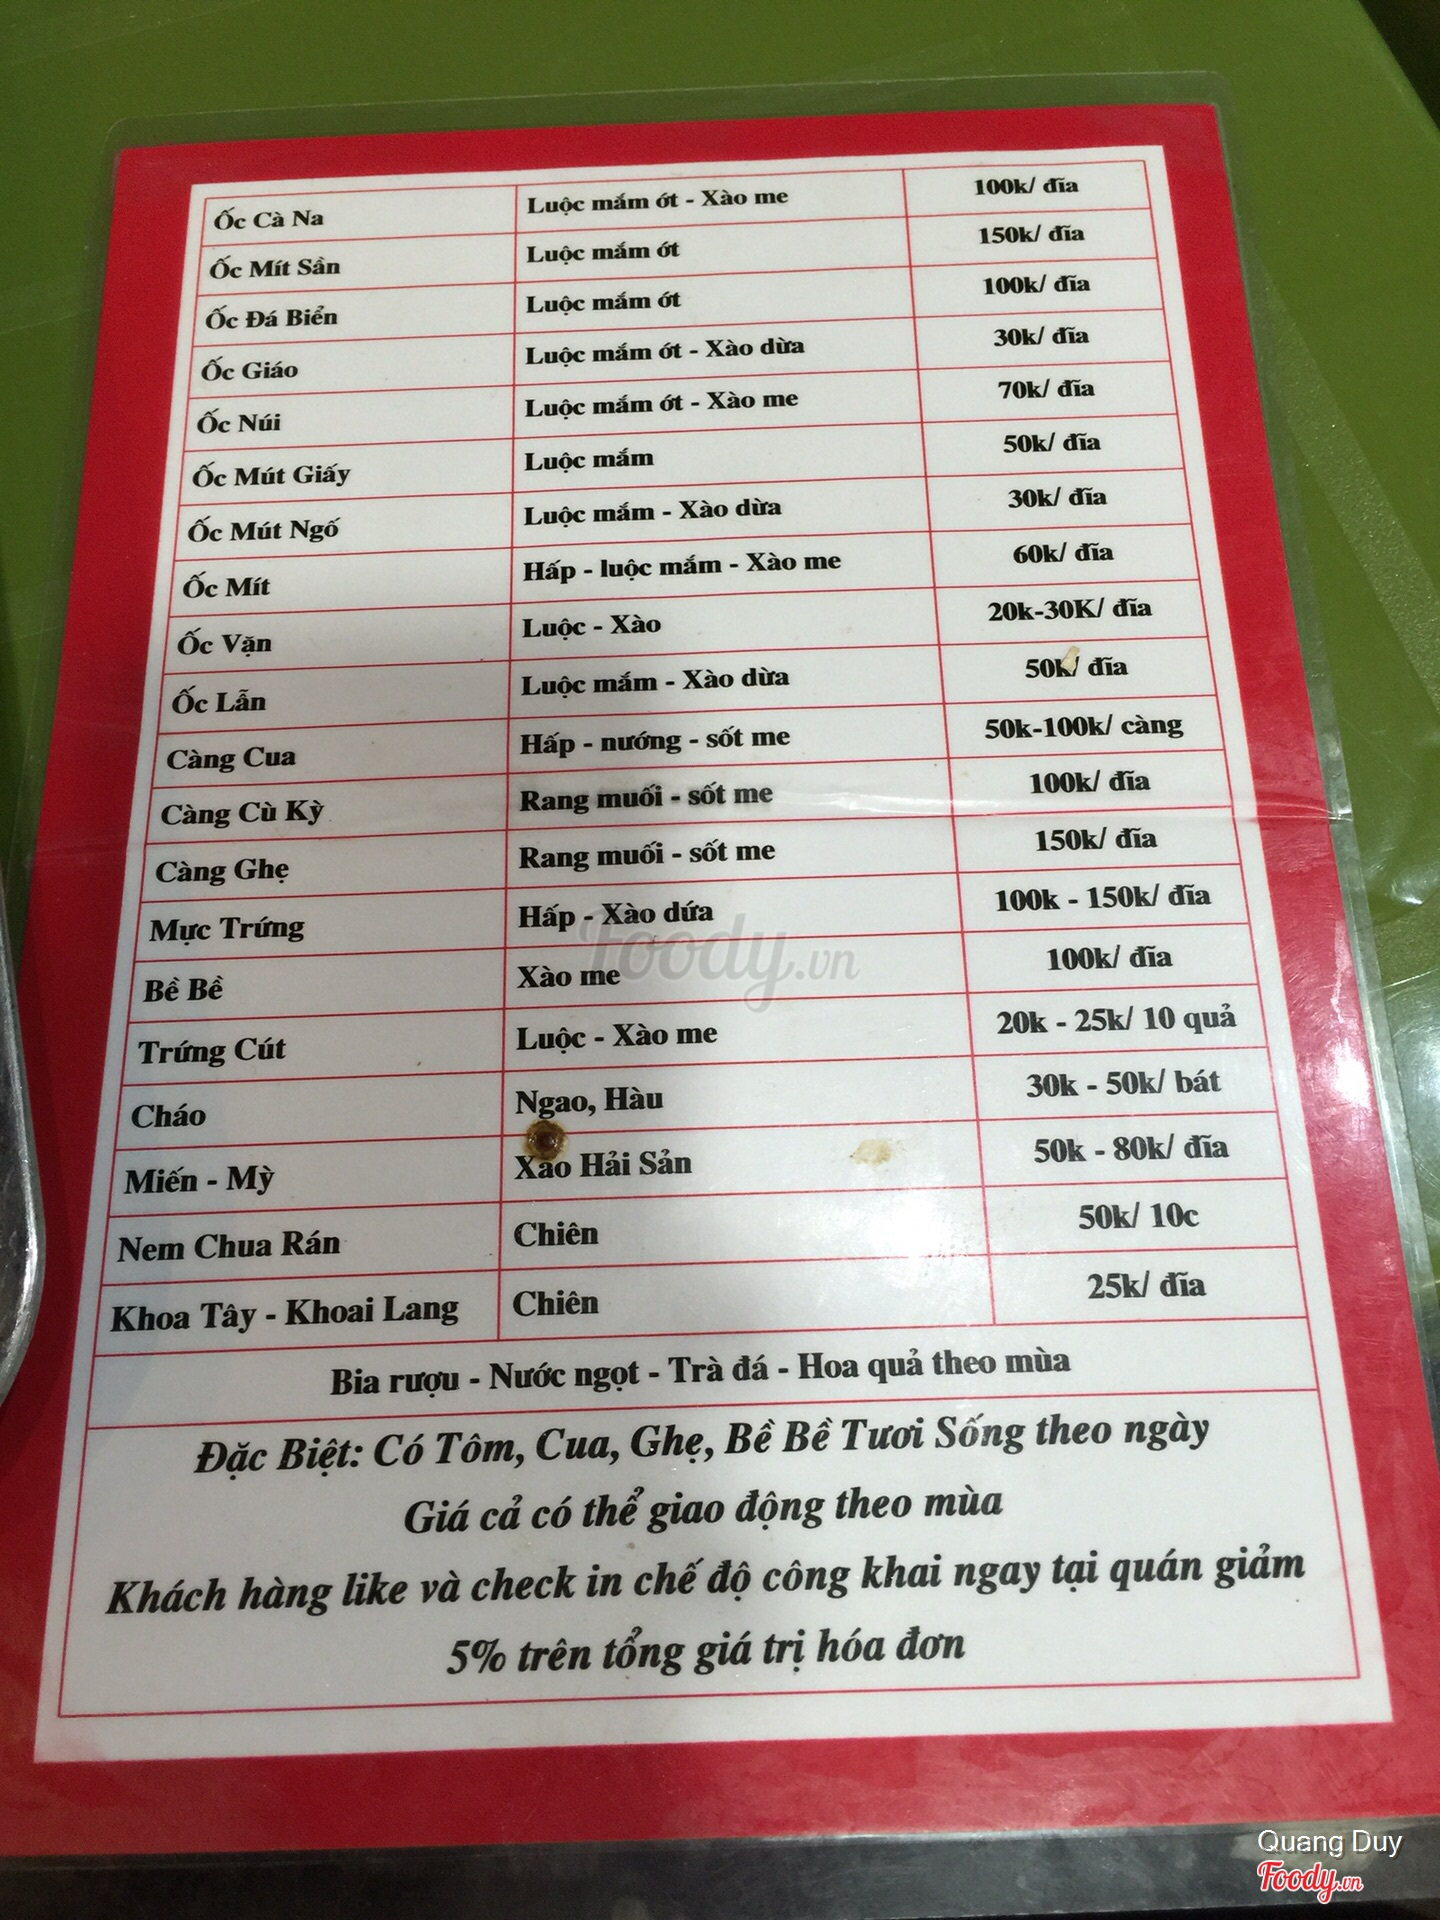 Ốc Cà Na Luộc mắm ớt - Xào me 100k/ đĩa
Ốc Mít Sần Luộc mắm ớt 150k/ đĩa
Ốc Đá Biển Luộc mắm ớt 100k/ đĩa
Ốc Giáo Luộc mắm ớt - Xào dừa 30k/ đĩa
Ốc Núi Luộc mắm ớt - Xào me 70k/ đĩa
Ốc Mút Giấy Luộc mắm 50k/ đĩa
Ốc Mút Ngố Luộc mắm - Xào dừa 30k/ đĩa
Ốc Mít Hấp - luộc mắm - Xào me 60k/ đĩa
Ốc Vặn Luộc - Xào 20k-30K/ đĩa
Ốc Lẫn Luộc mắm - Xào dừa 50k/ đĩa
Càng Cua Hấp - nướng - sốt me 50k-100k/ càng
Càng Cù Kỳ Rang muối - sốt me 100k/ đĩa
Càng Ghẹ Rang muối - sốt me 150k/ đĩa
Mực Trứng Hấp - Xào dứa 100k - 150k/ đĩa
Bề Bề Xào me 100k/ đĩa
Trứng Cút Luộc - Xào me 20k - 25k/ 10 quả
Cháo Ngao, Hàu 30k - 50k/ bát
Miến - Mỳ Xào Hải Sản 50k - 80k/ đĩa
Nem Chua Rán Chiên 50k/ 10c
Khoa Tây - Khoai Lang Chiên 25k/ đĩa
Bia rượu - Nước ngọt - Trà đá - Hoa quả theo mùa
Đặc Biệt: Có Tôm, Cua, Ghẹ, Bề Bề Tươi Sống theo ngày
Giá cả có thể giao động theo mùa
Khách hàng like và check in chế độ công khai ngay tại quán giảm
5% trên tổng giá trị hóa đơn
Foody.vn
Quang Duy
Foody.vn